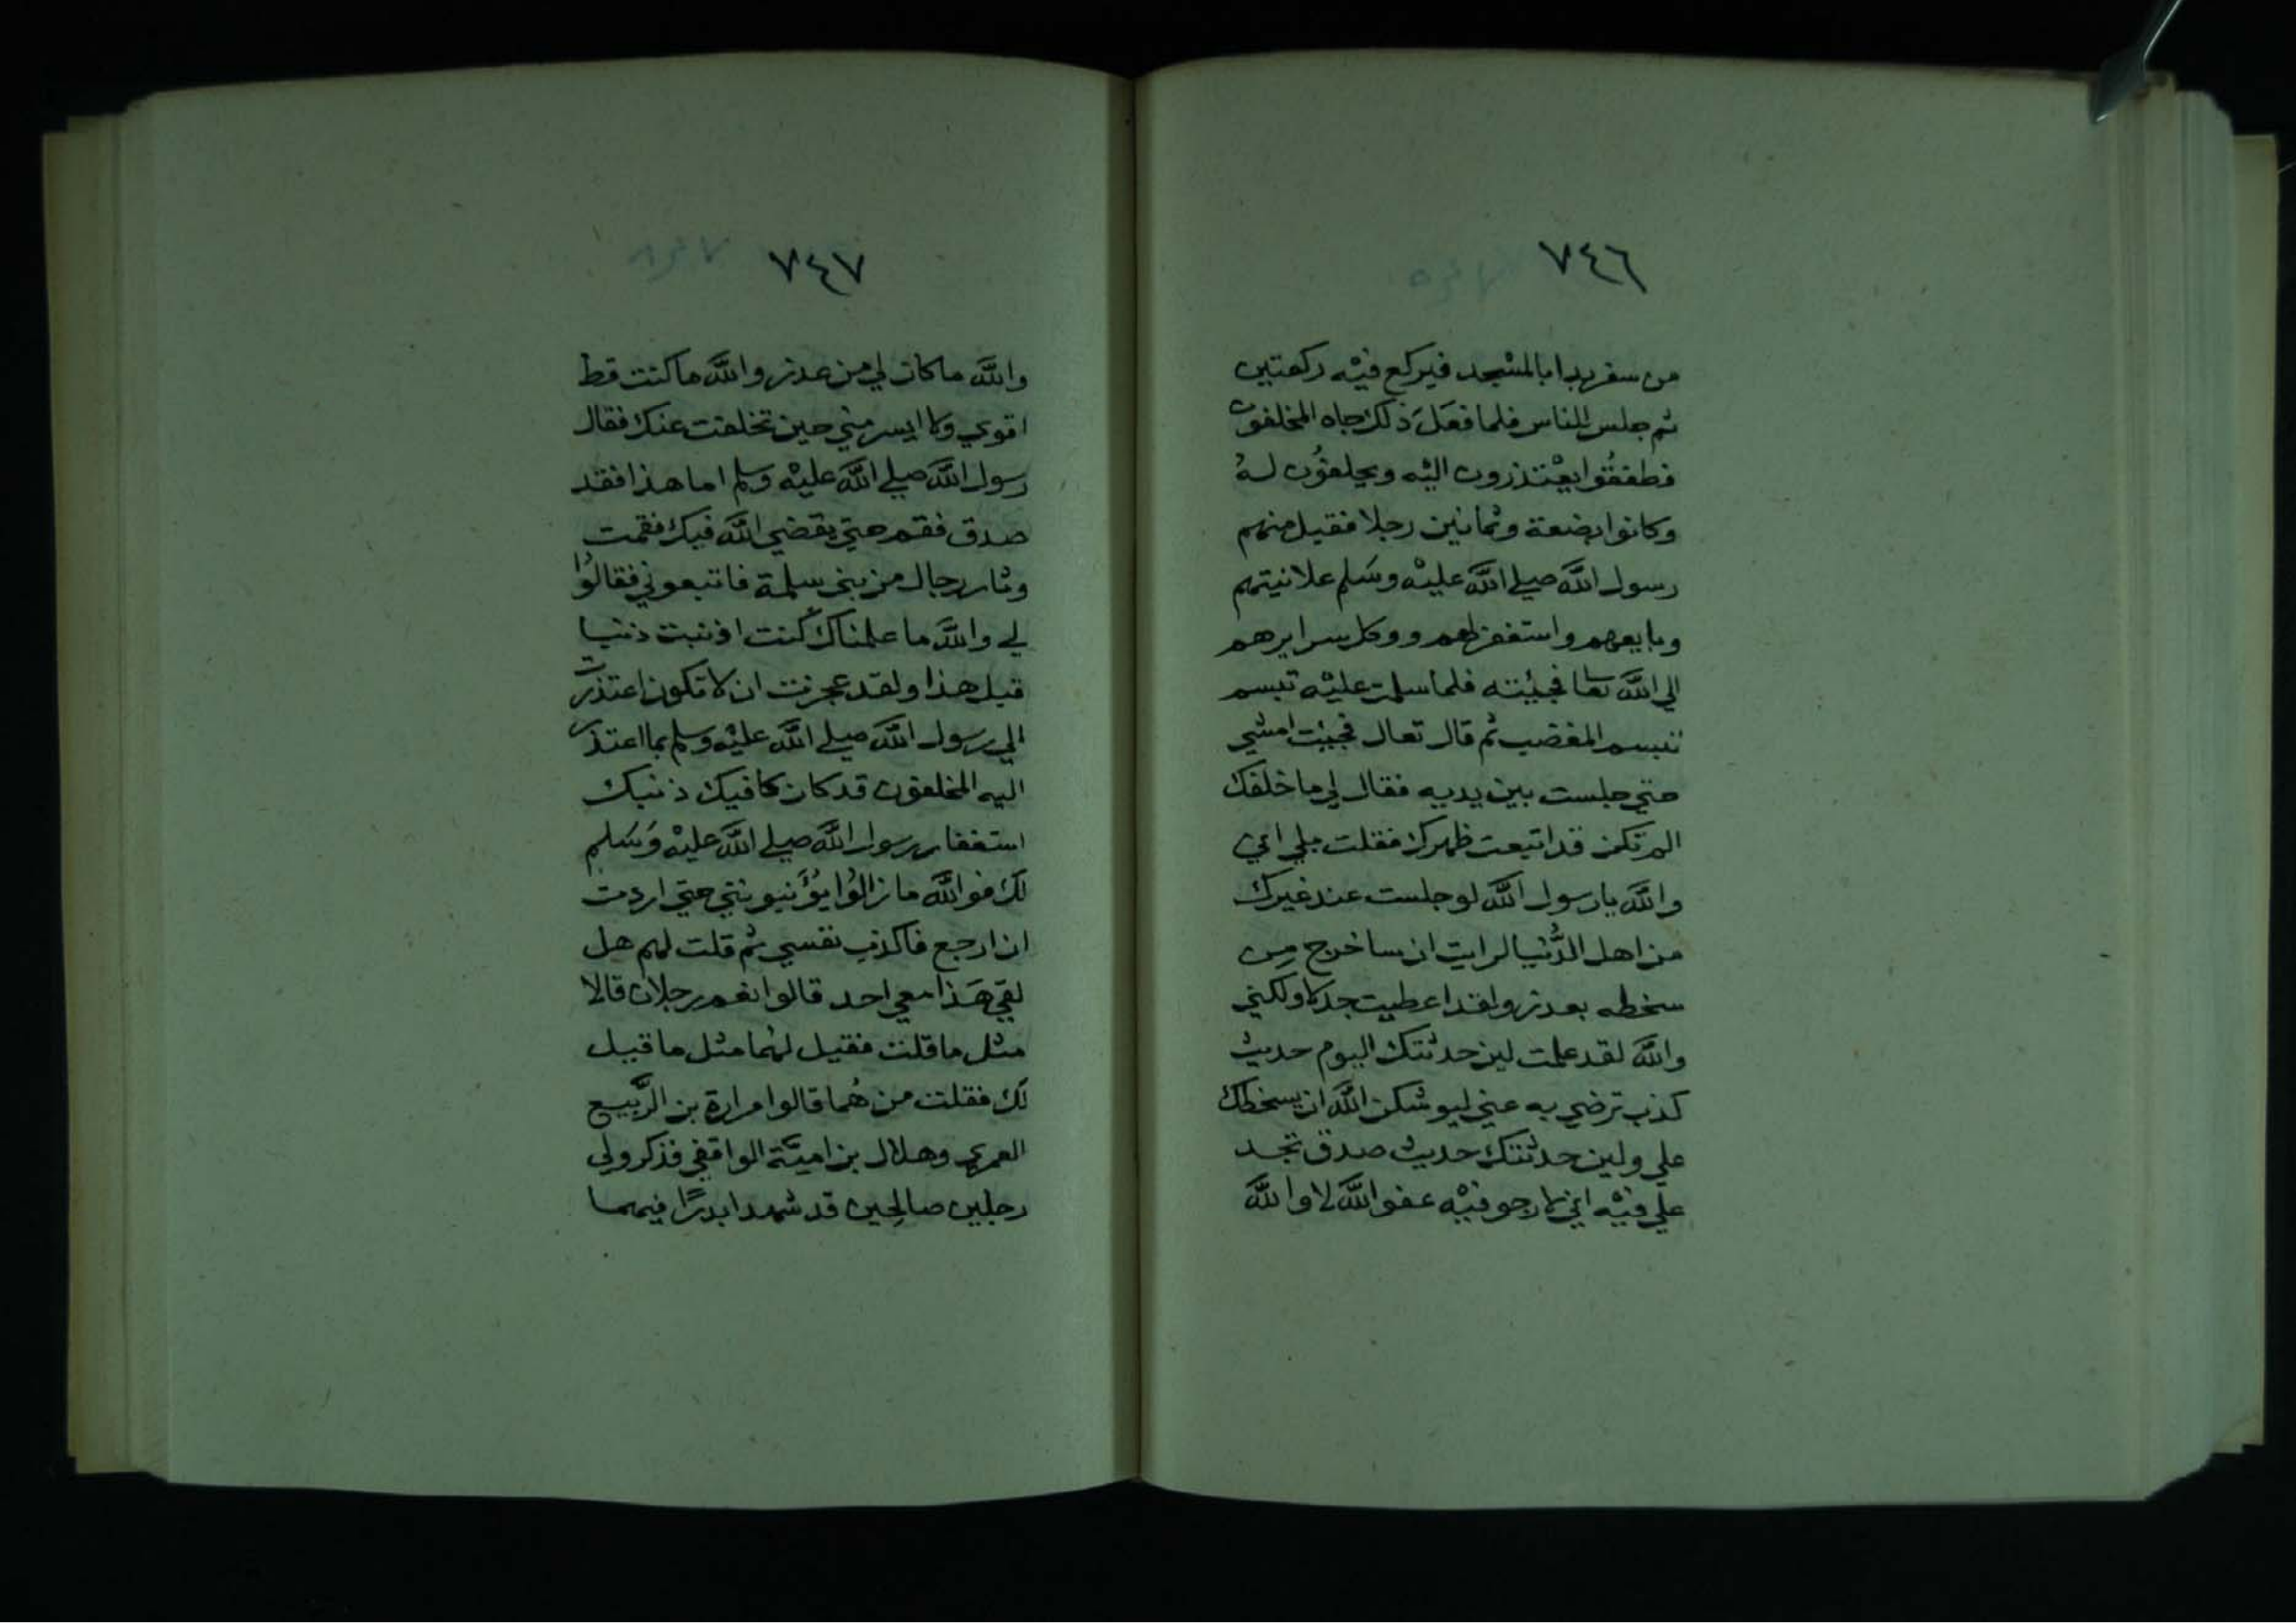 ٧٤٦
من سفر بدا بالمسْجد فيركع فيْه ركعتين
ثم جلس للناس فلما فعَلَ ذلك جاه المخلفون
فطفقُوا يعْتذرون اليْه ويحلفوُن لهُ
وكانوا بضعة وثمانين رجلا فقبل منهم
رسول اللَّه صلي اللَّه عليْه وسَلم علانيتهم
وبايعهم واستغفر لهم ووكل سرايرهم
الي اللَّه تعا فجيْته فلما سلمت عليْه تبسم
تبسم المغضب ثم قال تعال فجيْت امشي
حتي جلست بين يديه فقال لي ما خلفك
الم تكن قد اتبعت ظهرك فقلت بلي اني
واللَّه يا رسول اللَّه لو جلست عند غيرك
من اهل الدُّنيا لرايت ان ساخرج مِن
سخطه بعذر ولقد اعطيت جدلا ولكني
واللَّه لقد علمت لين حدثتك اليوم حديث
كذب ترضي به عني ليوشكن اللَّه ان يسخطك
علي ولين حدثتك حديث صدق تجد
علي فيْه اني لارجو فيْه عفو اللَّه لا واللَّه
٧٤٧
واللَّه ما كان لي من عذر واللَّه ما كنت قط
اقوي ولا ايسر مني حين تخلفت عنك فقال
رسول اللَّه صلي اللَّه عليْه وسلم اما هذا فقد
صدق فقم حتي يقضي اللَّه فيك فقمت
وثار رجال من بني سلمة فاتبعوني فقالوُا
لي واللَّه ما علمناك كنت اذنبت ذنبا
قبل هذا ولقد عجزت ان لا تكون اعتذرت
الي رسول اللَّه صلي اللَّه عليْه وسلم بما اعتذر
اليه المخلفون قد كان كافيك ذنبك
استغفار رسول اللَّه صلي اللَّه عليْه وَسَلم
لك فواللَّه ما زالوُا يؤَنبونني حتي اردت
ان ارجع فاكذب نفسي ثم قلت لهم هل
لقي هَذا معي احد قالوا نعم رجلان قالا
مثل ما قلت فقيل لهُما مثل ما قيل
لك فقلت من هُما قالوا مرارة بن الرَّبيع
العمري وهلال بن اميَّة الواقفي فذكرو لي
رجلين صالحِين قد شهدا بدرًا فيهما